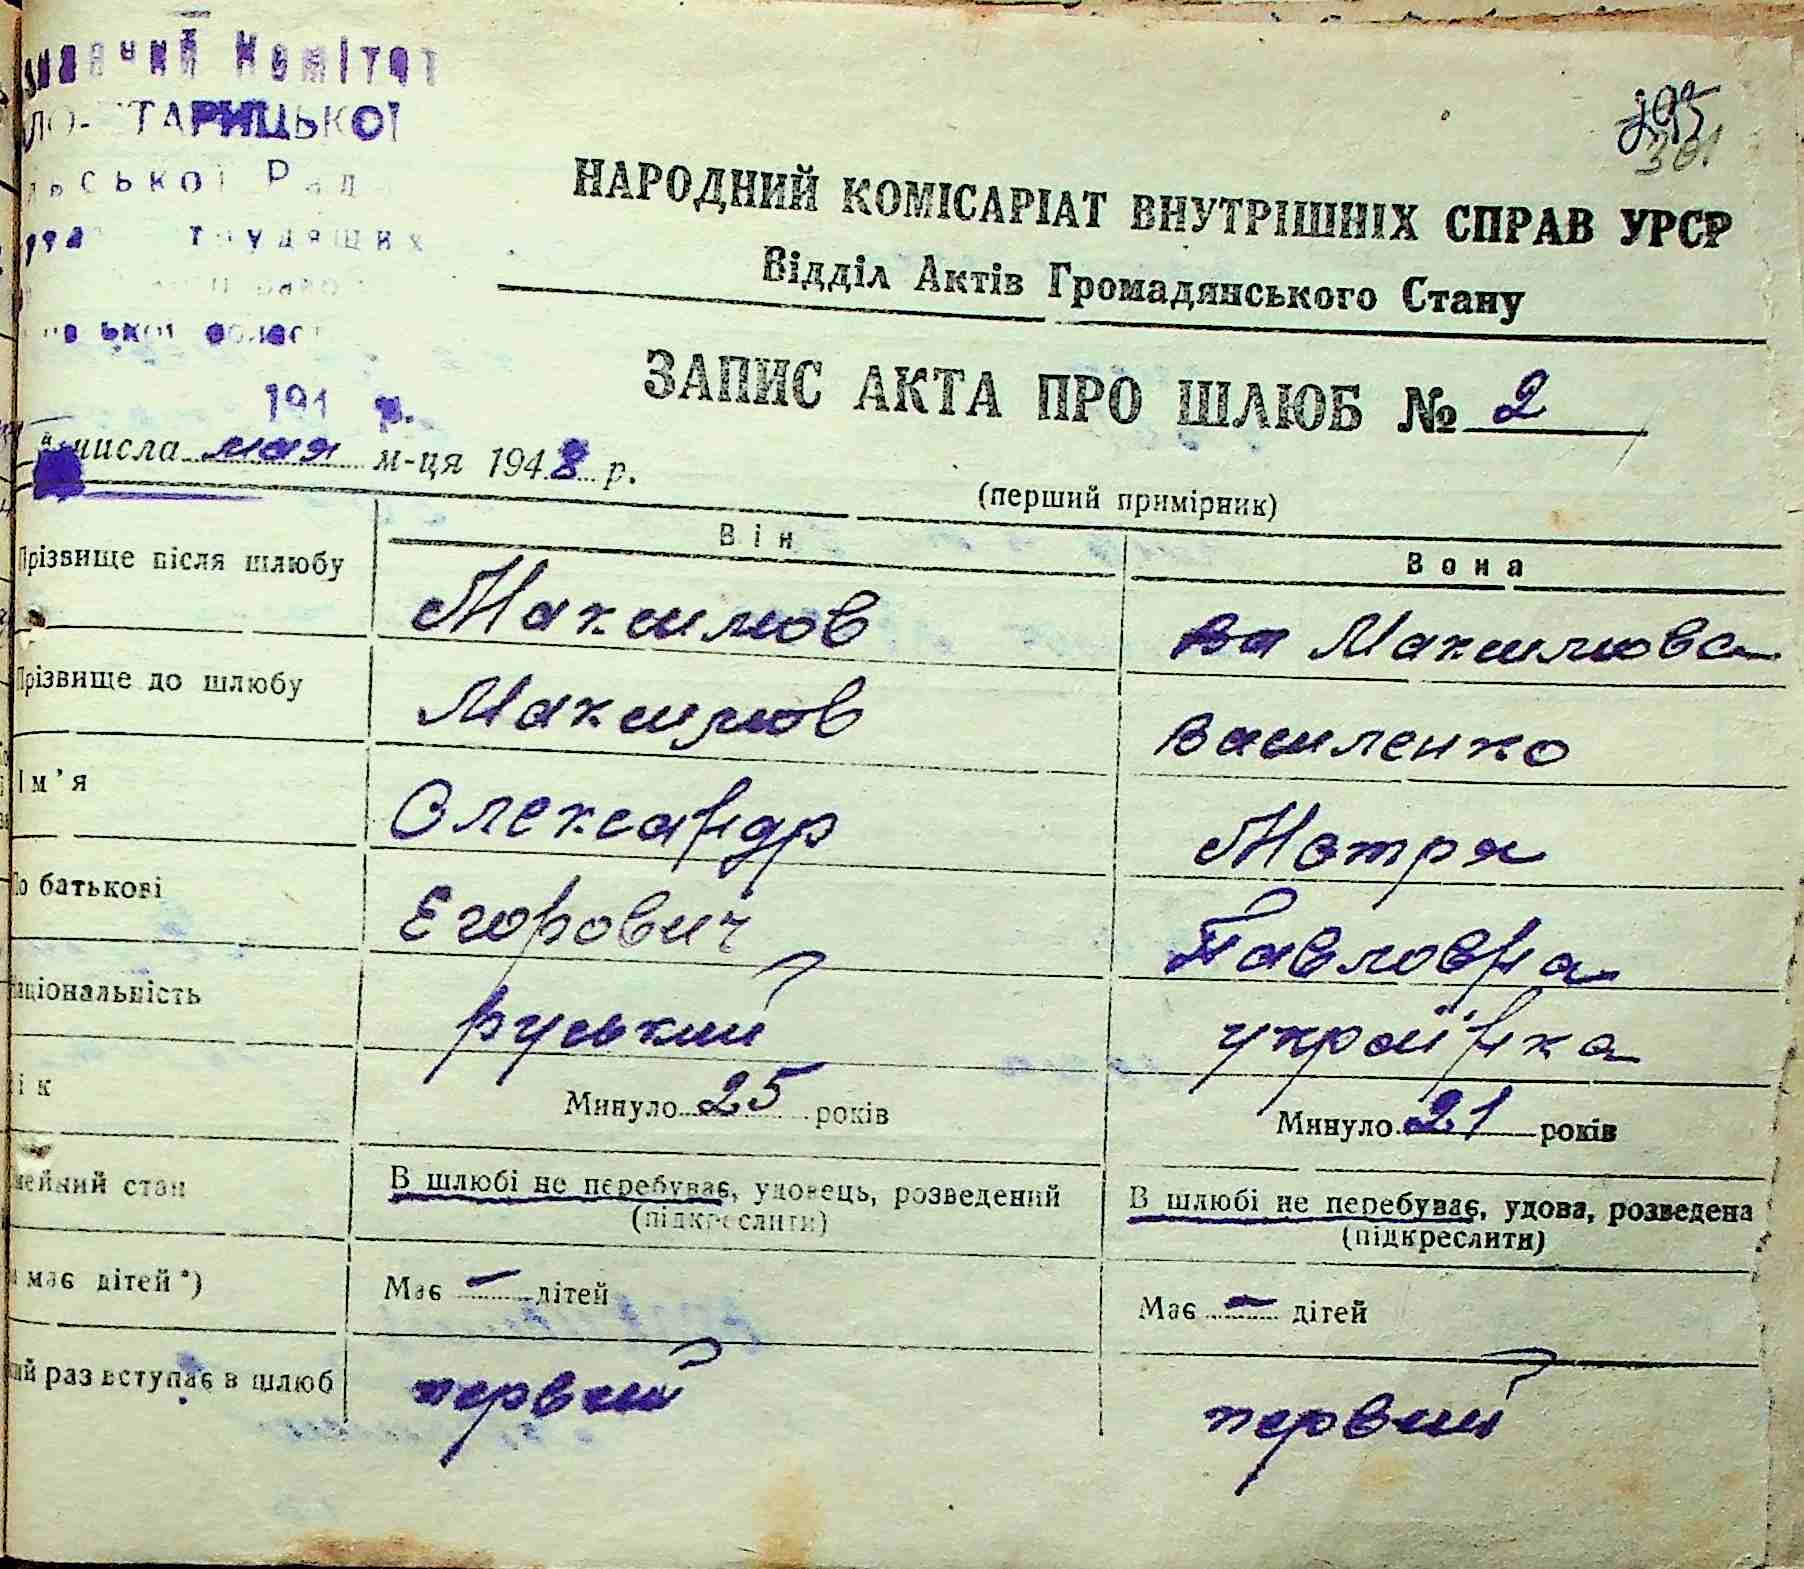 Комітет
ТАРИЦЬКОЇ
Рад
трудящих
295
301
НАРОДНИЙ КОМІСАРІАТ ВНУТРІШНІХ СПРАВ УРСР
Відділ Актів Громадянського Стану
ЗАПИС АКТА ПРО ШЛЮБ № 2
191 р.
числа мая м-ця 1948 р.
(перший примірник)
Він
Вона
Прізвище після шлюбу Максимов Ва Максимова
Прізвище до шлюбу Максимов Василенко
Ім'я Олександр Мотря
По батькові Єгорович Павловна
національність руський українка
ік Минуло 25 років Минуло 21 років
мейний стан В шлюбі не перебуває, удовець, розведений В шлюбі не перебуває, удова, розведена
(підкреслити) (підкреслити)
має дітей*) Має – дітей Має – дітей
ий раз вступає в шлюб первий первий